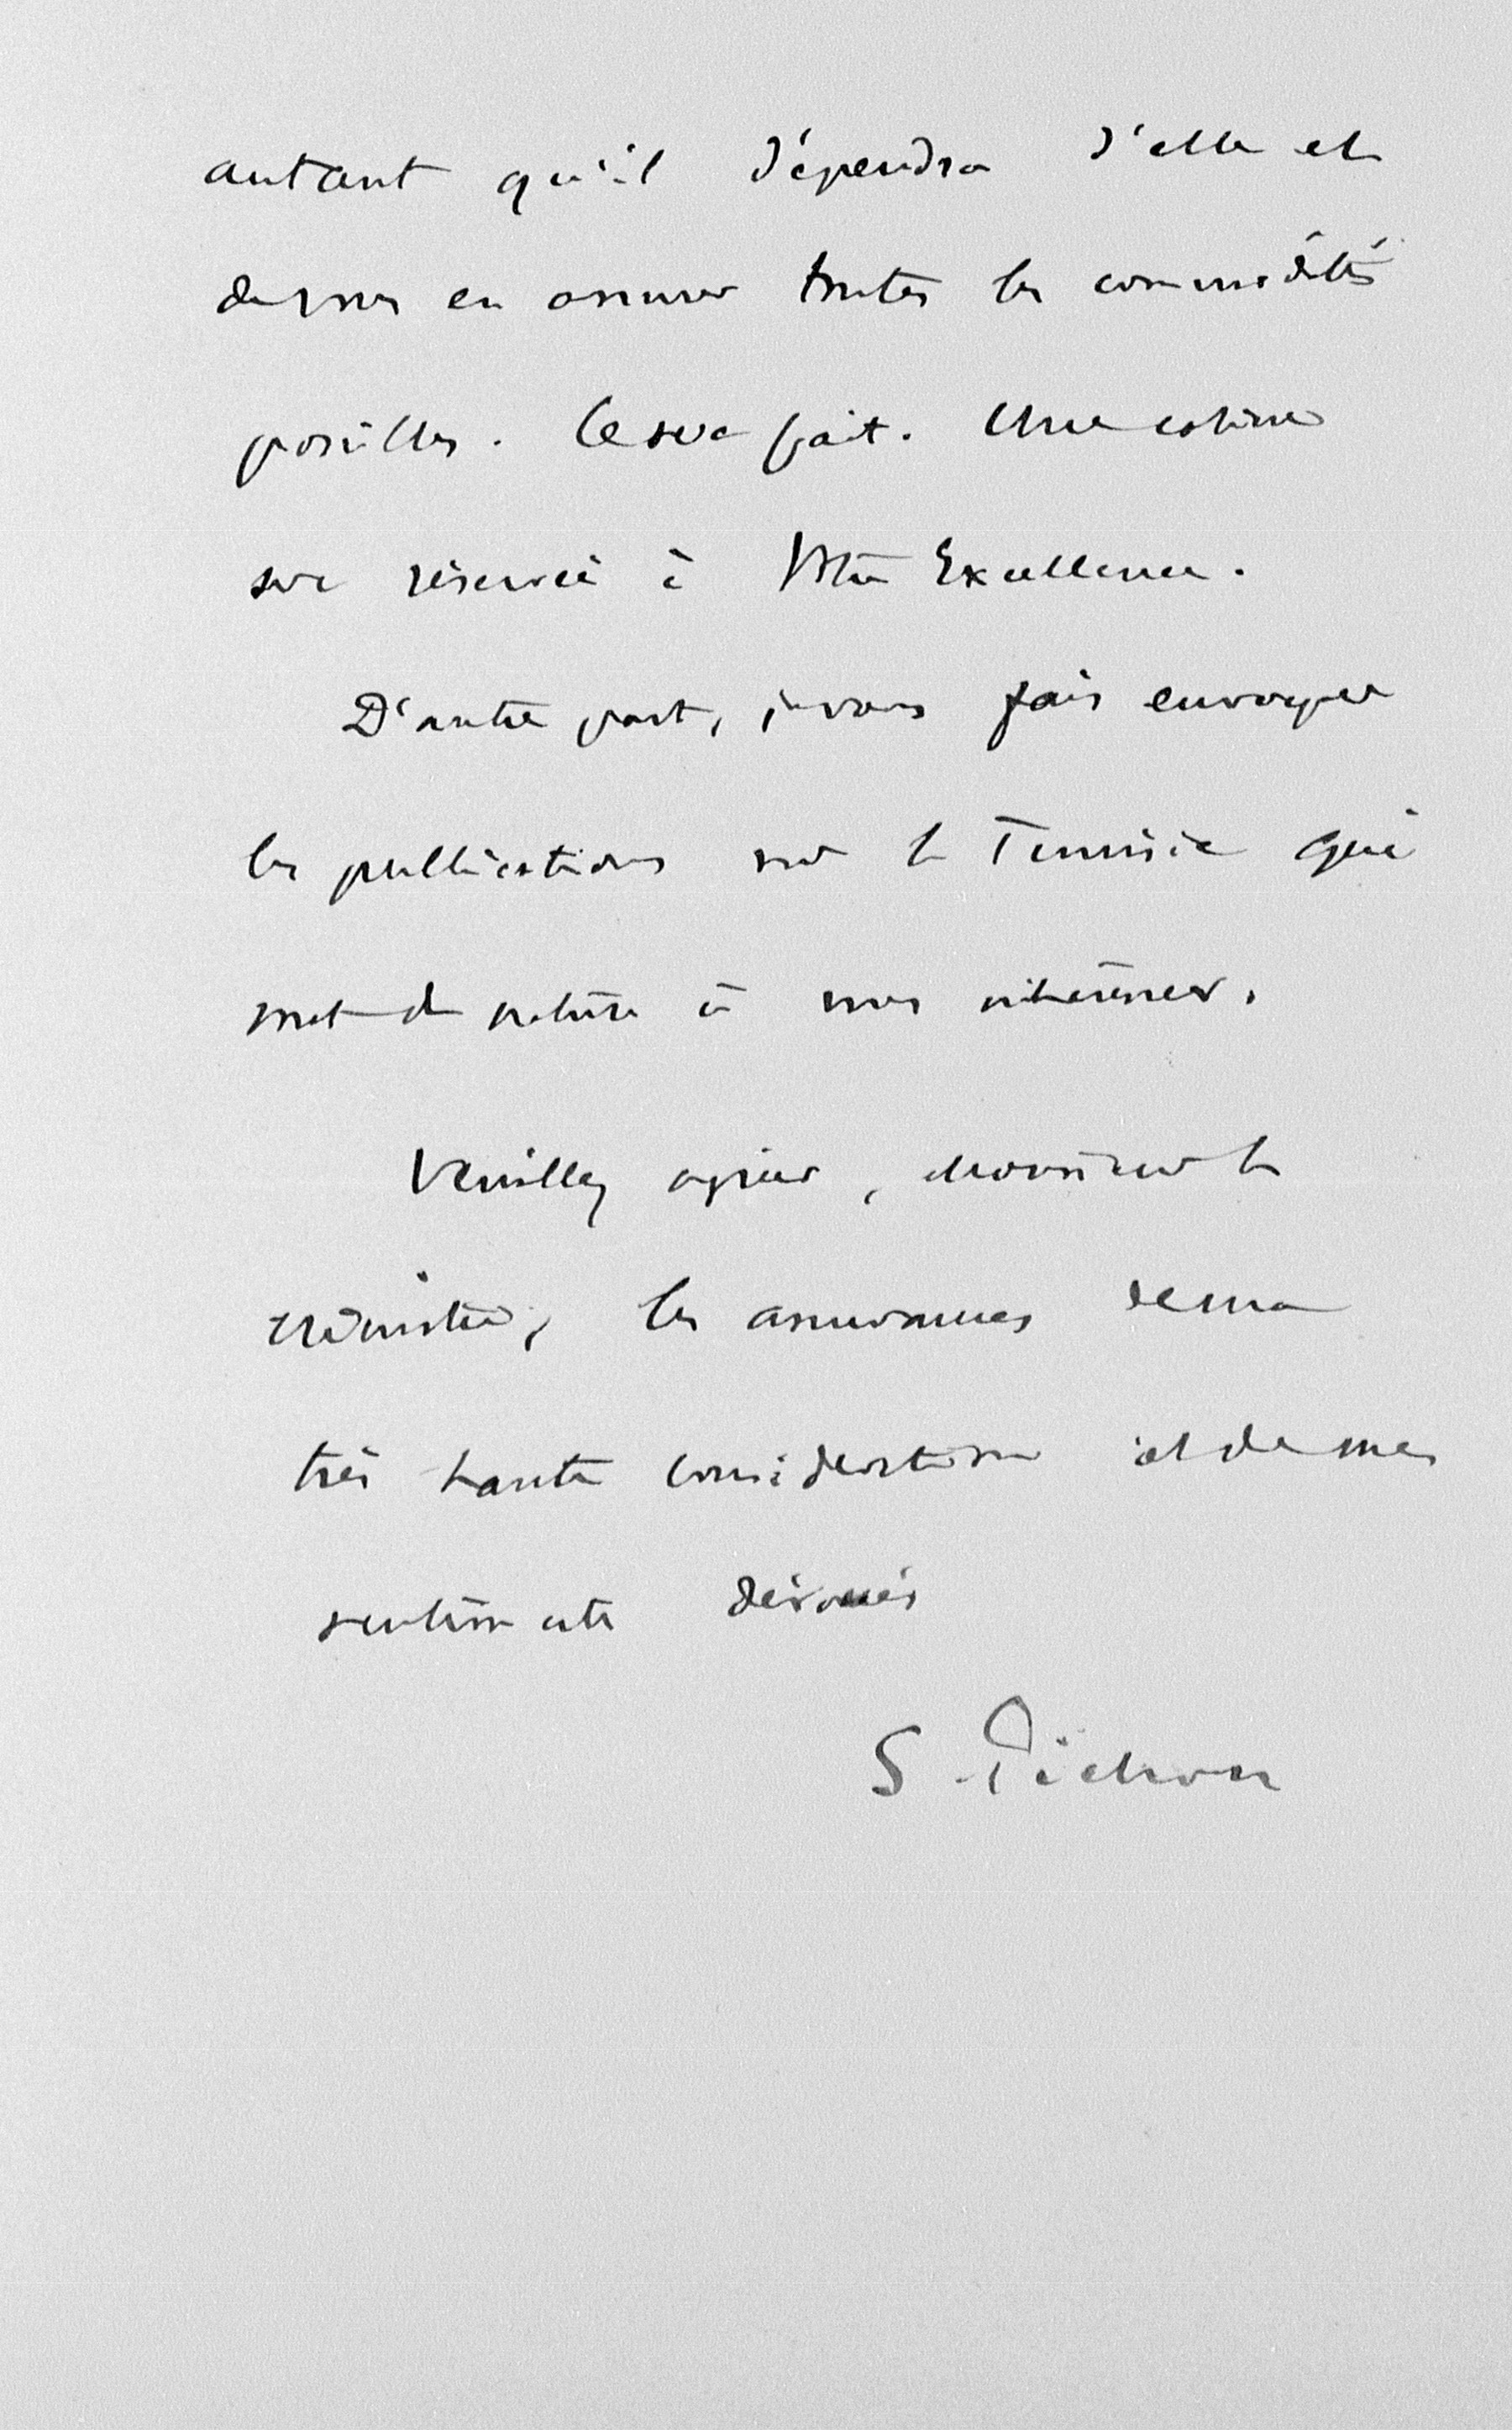 autant qu'il dépendra d'elle et
de vous en assurer toutes les commodités
possibles. Ce sera fait. Une cabine
sera réservée à Votre Excellence.
D'autre part, je vous fais envoyer
les publications sur la Tunisie qui
sont de nature à vous intéresser.
Veuillez agréer, Monsieur le
Ministre, les assurances de ma
très haute considération et de mes
sentiments dévoués
S. Pichon